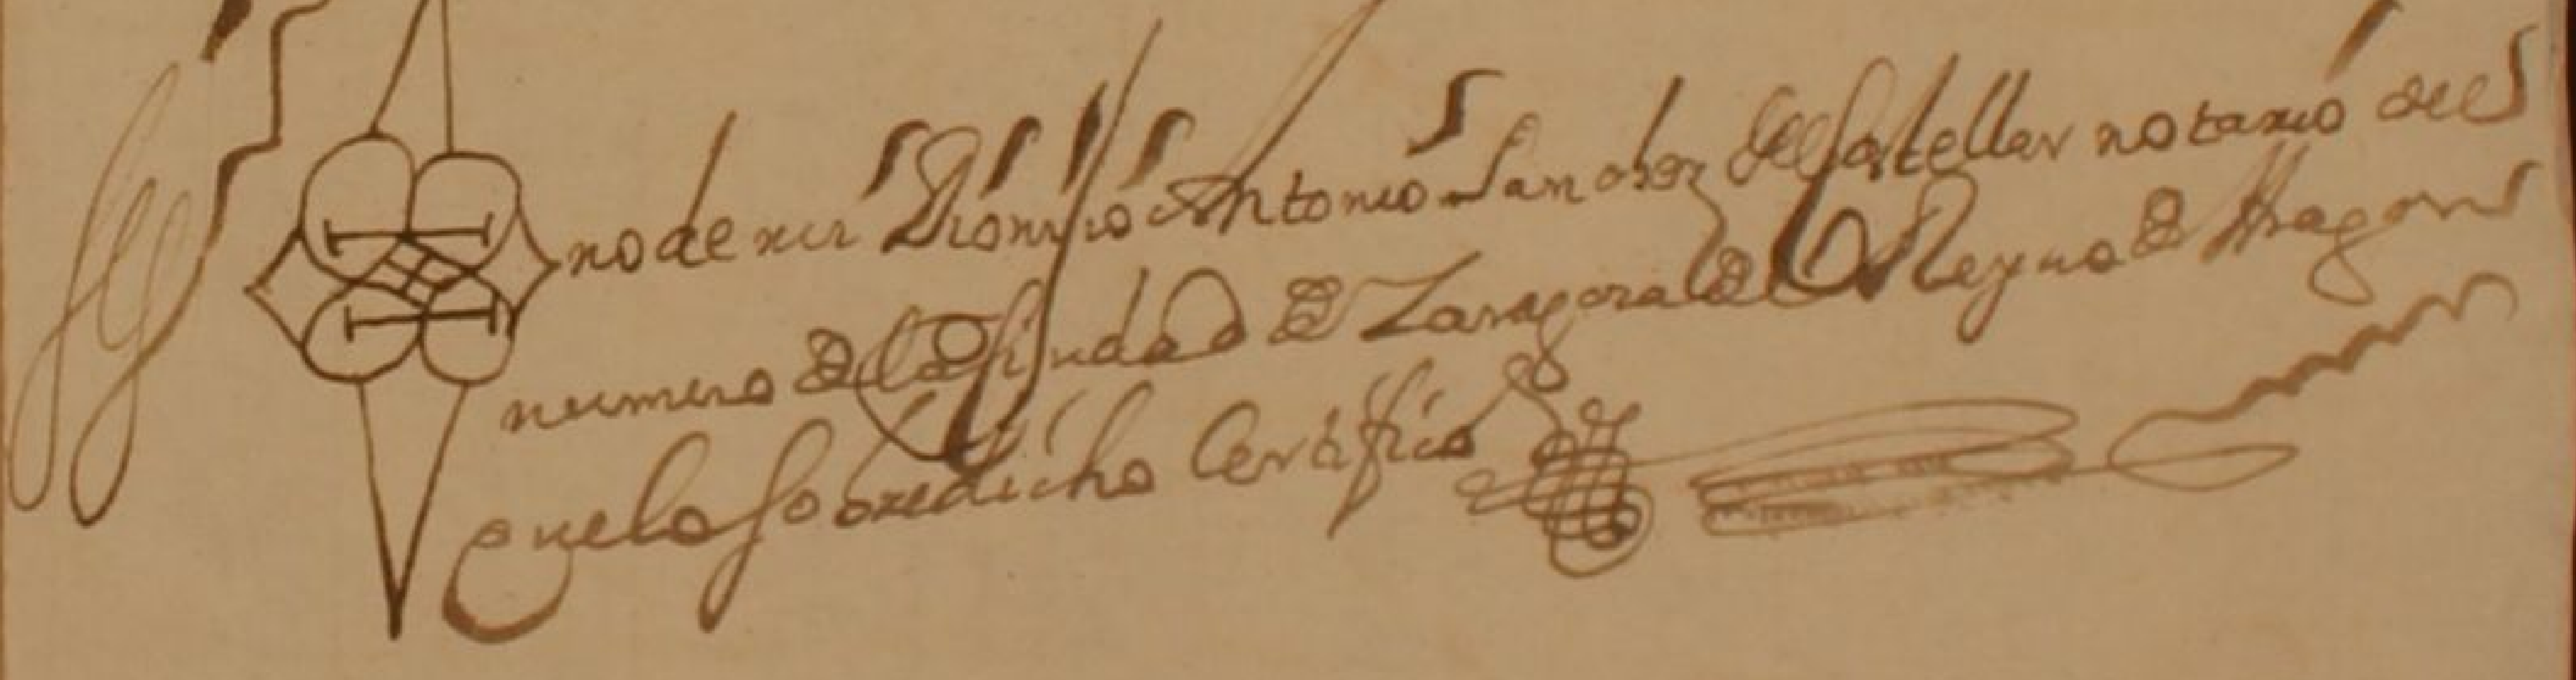 no de mi Dionisio Antonio Sanchez del Castellar notario del
numero de la Ciudad de Zaragoza del Reyno de Aragon
que lo sobredicho Certifico